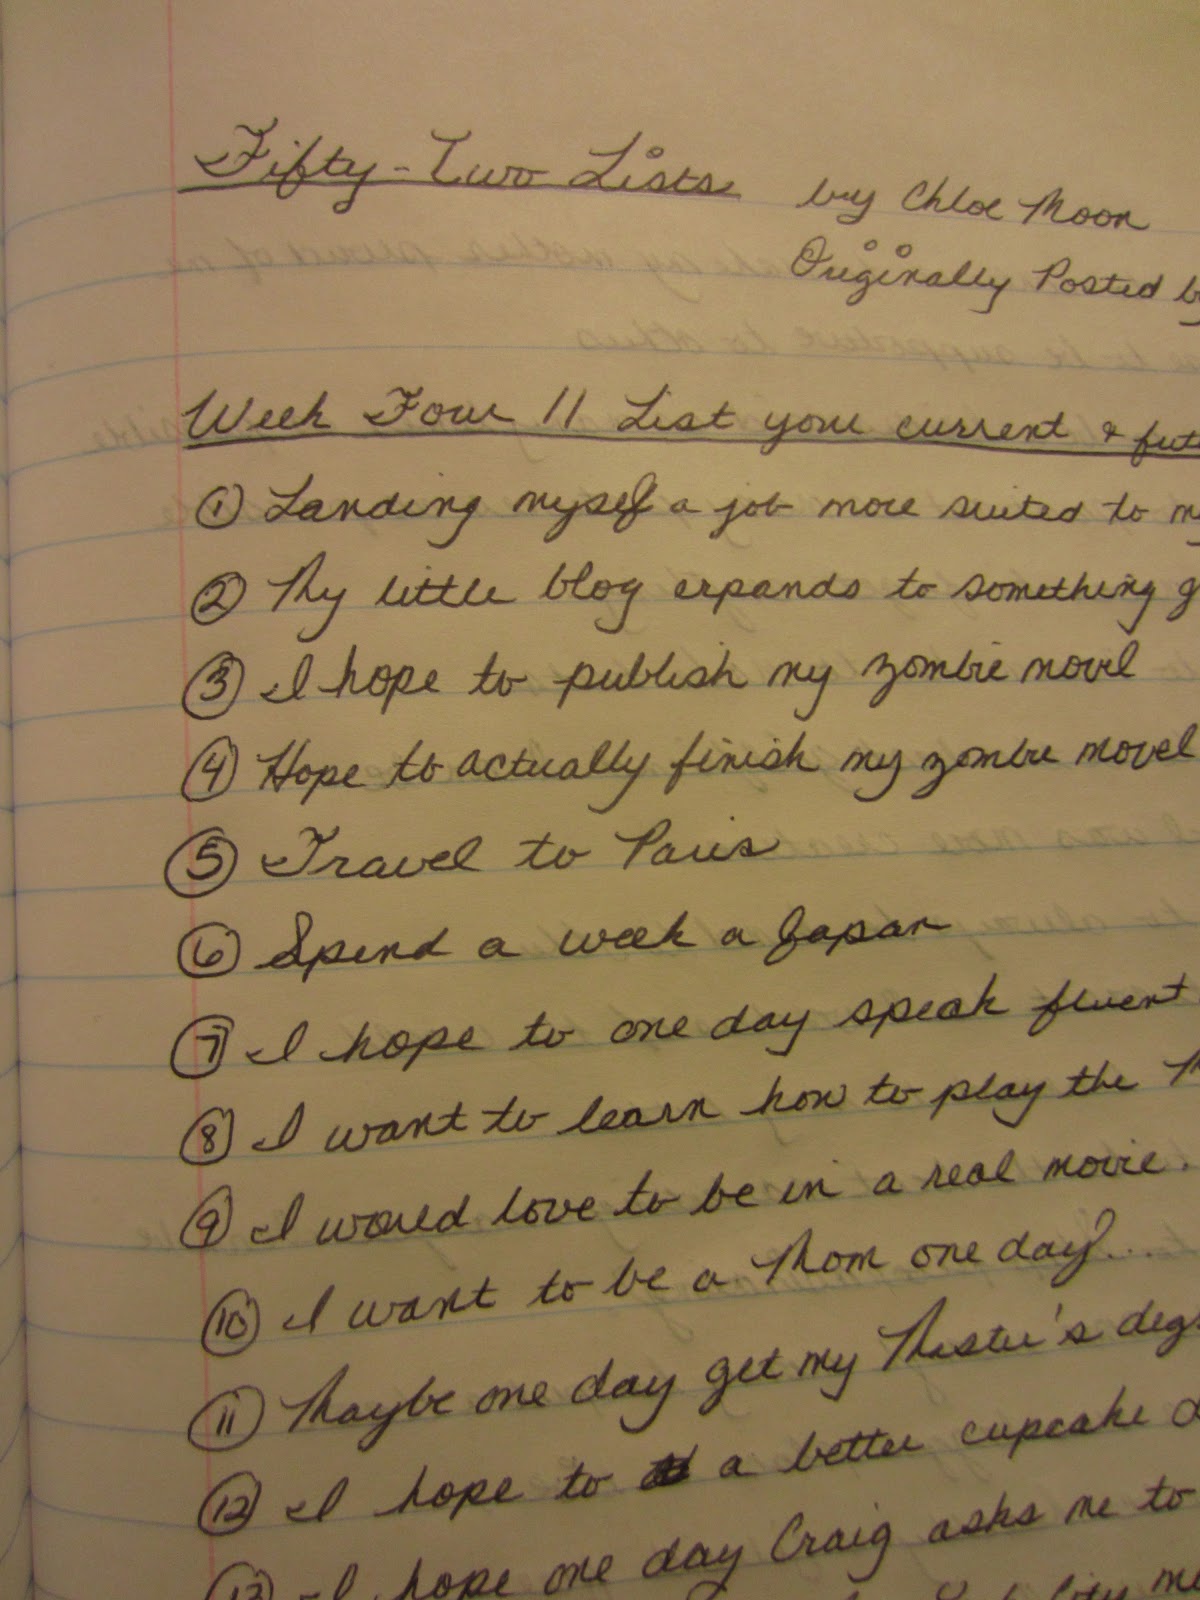 Fifty-Two Lists by Chloe Moon
Originally Posted by
Week Four // List your current & fut
① Landing myself a job more suited to my
② My little blog expands to something g
③ I hope to publish my zombie novel
④ Hope to actually finish my zombie novel
⑤ Travel to Paris
⑥ Spend a week a Japan
⑦ I hope to one day speak fluent
⑧ I want to learn how to play the
⑨ I would love to be in a real movie.
⑩ I want to be a Mom one day?...
⑪ Maybe one day get my Master's deg
⑫ I hope to a better cupcake
⑬ I hope one day Craig asks me to
City me